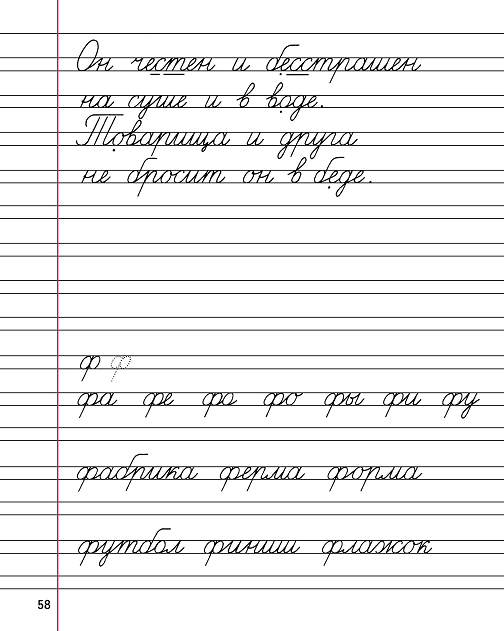 Он честен и бесстрашен
на суше и в воде.
Товарища и друга
не бросит он в беде.
ф ф
фа фе фо фо фы фи фу
фабрика ферма форма
футбол финиш флажок
58